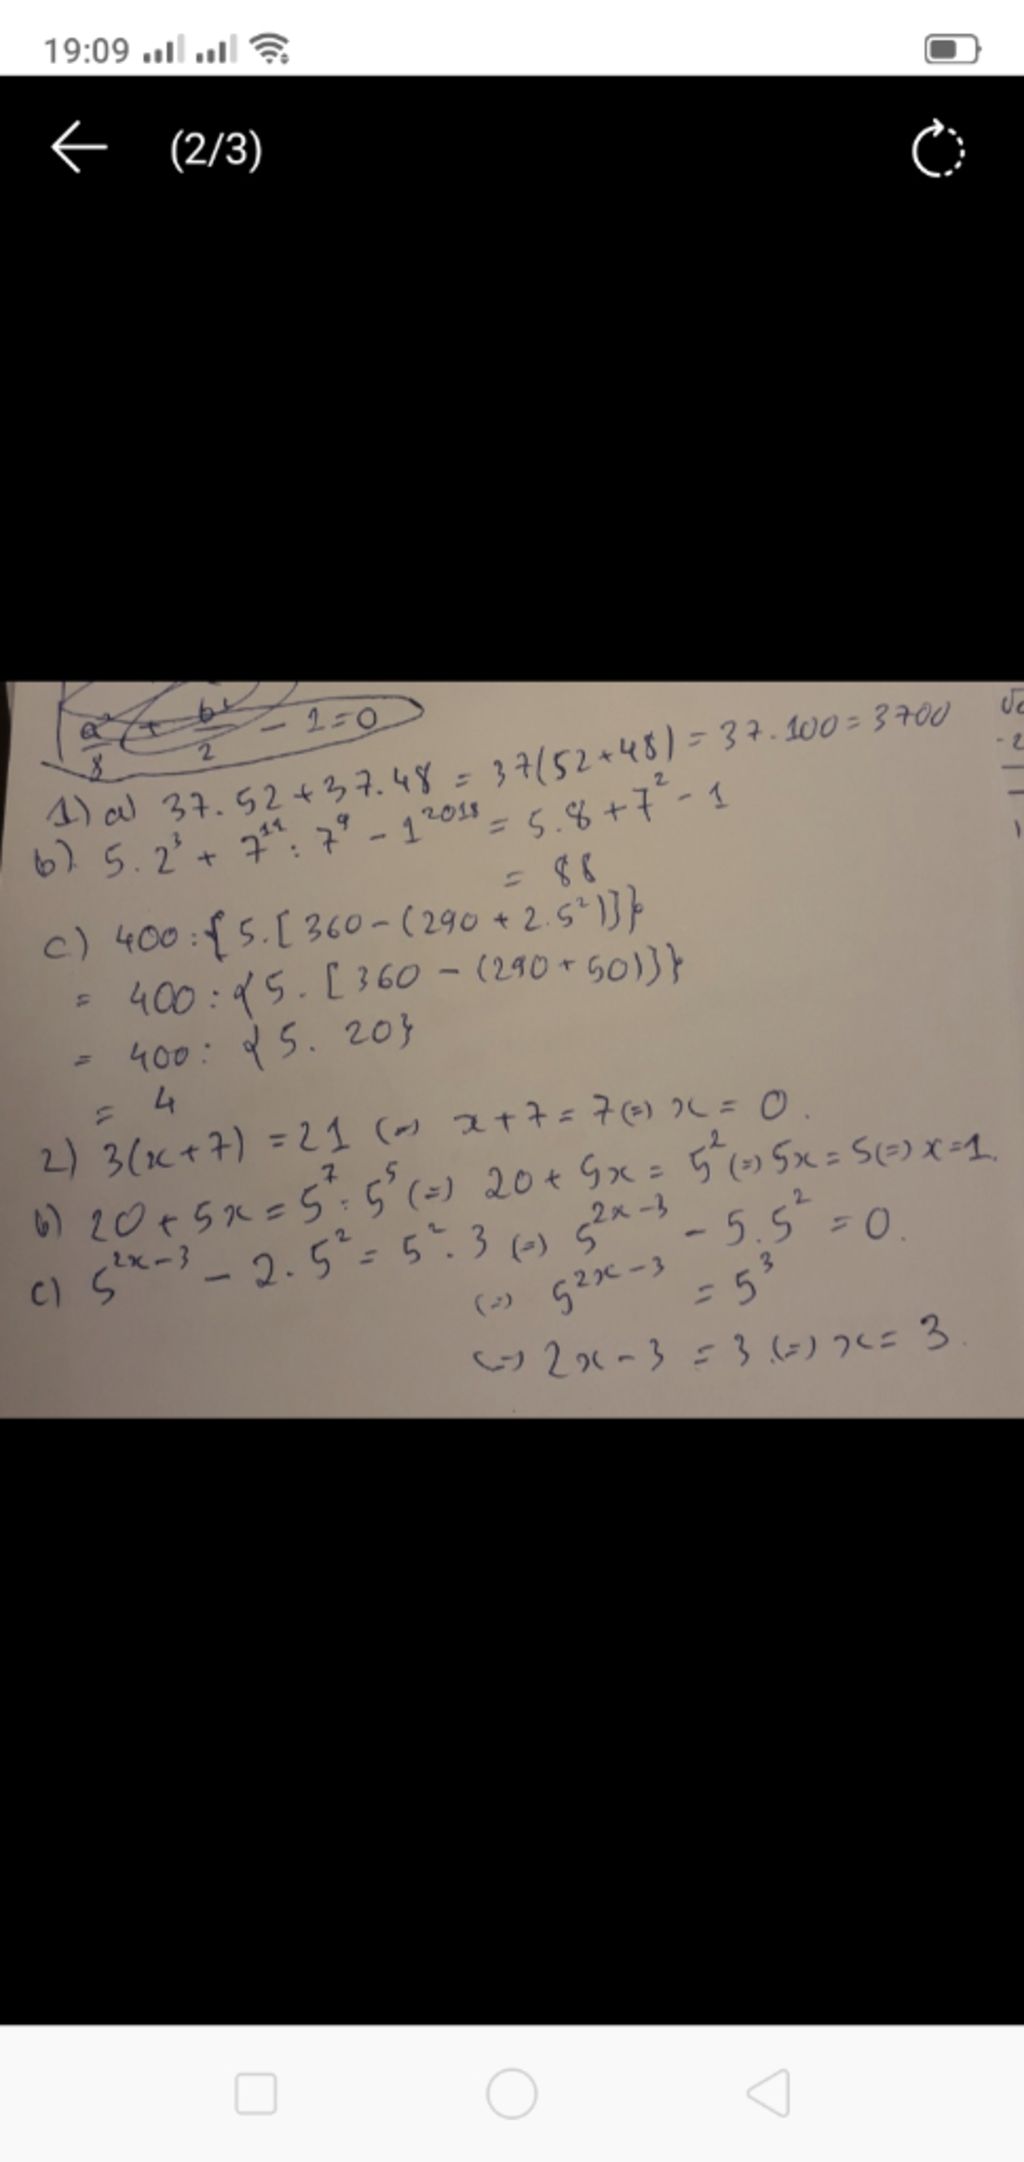 19:09
(2/3)
a² + b² - 1=0
8 2
1) a) 37.52+37.48 = 37(52+48) = 37.100=3700
b) 5.2³ + 7¹¹ : 7⁹ - 1²⁰¹⁸ = 5.8+7² - 1
= 88
c) 400:{5.[360-(290+2.5²)]}
= 400:{5.[360-(290+50)]}
= 400: {5. 20}
= 4
2) 3(x+7) =21 (=) x+7=7(=) x= 0.
b) 20+5x=5⁷:5⁵ (=) 20+5x= 5² (=) 5x=5(=) x=1.
c) 5²ˣ⁻³ - 2.5² = 5².3 (=) 5²ˣ⁻³ - 5.5² =0.
(=) 5²ˣ⁻³ = 5³
(=) 2x-3 = 3 (=) x= 3.